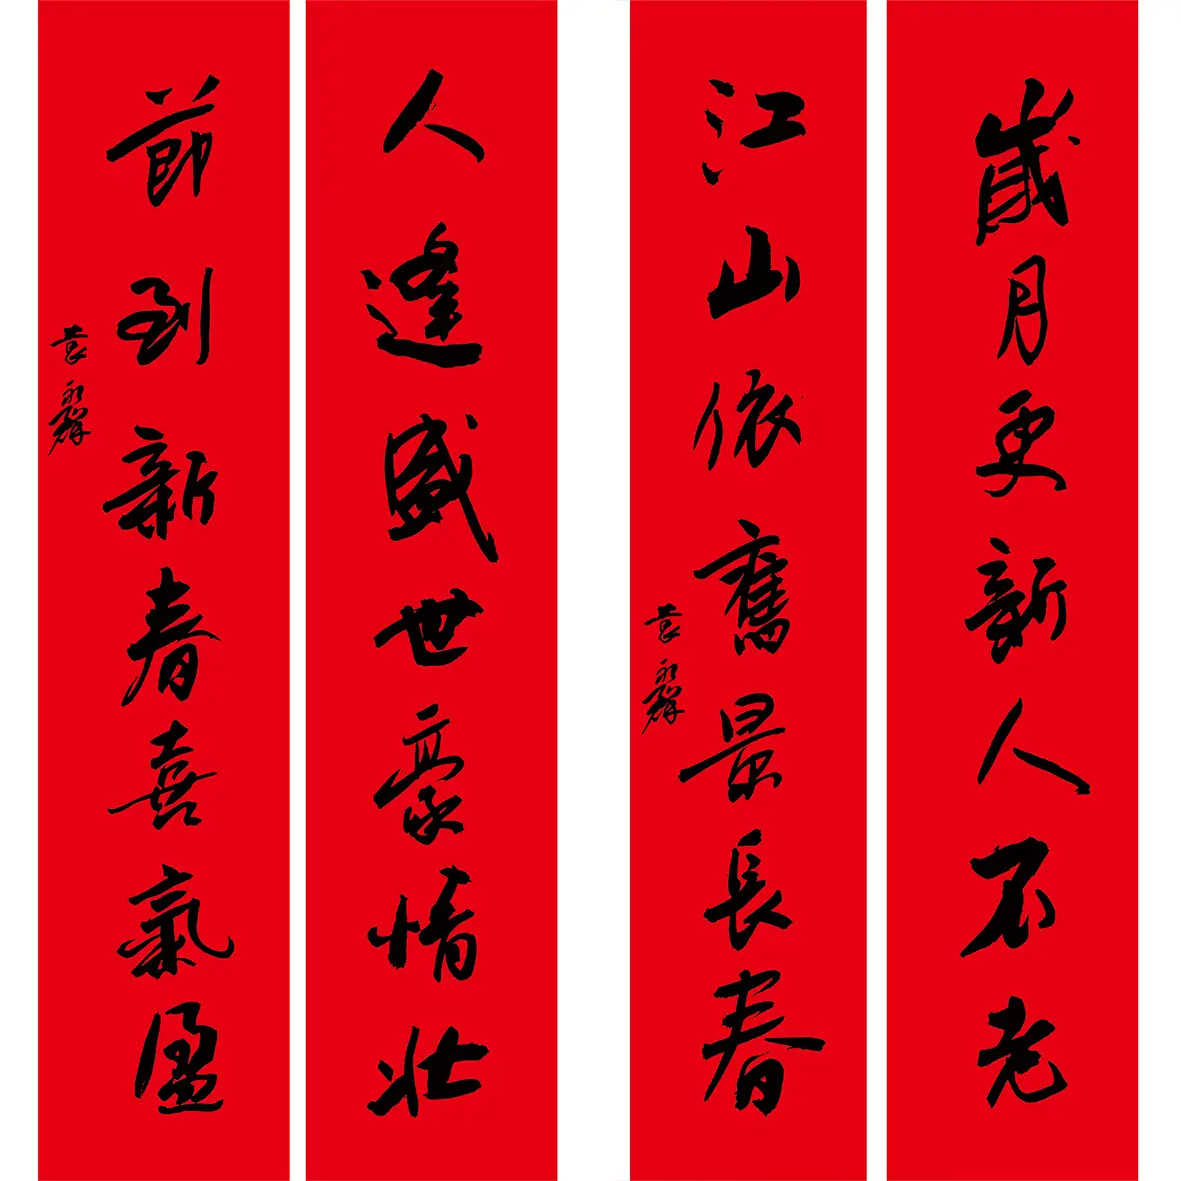 歲月更新人不老
江山依舊景長春
人逢盛世豪情壯
節到新春喜氣盈